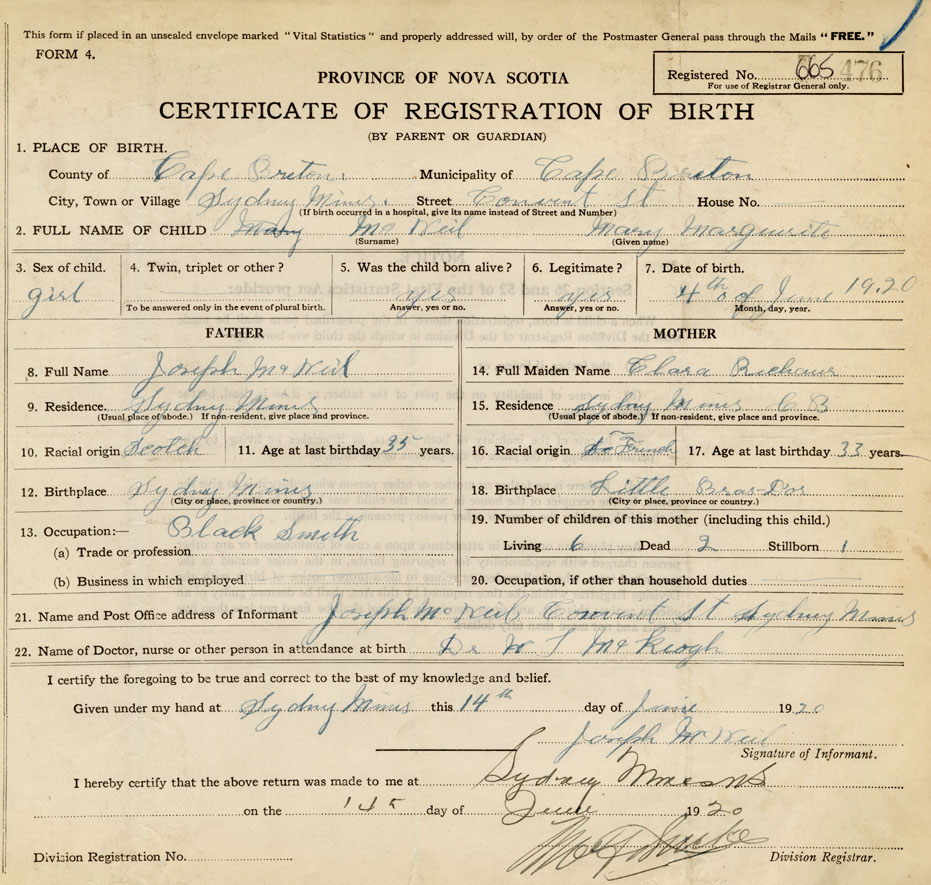 This form if placed in an unsealed envelope marked "Vital Statistics" and properly addressed will, by order of the Postmaster General pass through the Mails "FREE."
FORM 4.
Registered No. 665 476
For use of Registrar General only.
PROVINCE OF NOVA SCOTIA
CERTIFICATE OF REGISTRATION OF BIRTH
(BY PARENT OR GUARDIAN)
1. PLACE OF BIRTH.
County of Cape Breton. Municipality of Cape Breton
City, Town or Village Sydney Mines. Street Convent St House No.
(If birth occurred in a hospital, give its name instead of Street and Number)
2. FULL NAME OF CHILD Mary McNeil Mary Marguerite
(Surname) (Given name)
3. Sex of child. 4. Twin, triplet or other? 5. Was the child born alive? 6. Legitimate? 7. Date of birth.
girl yes yes 4th of June 1920
To be answered only in the event of plural birth. Answer, yes or no. Answer, yes or no. Month, day, year.
FATHER
8. Full Name Joseph McNeil
9. Residence. Sydney Mines
(Usual place of abode.) If non-resident, give place and province.
10. Racial origin Scotch 11. Age at last birthday 35 years.
12. Birthplace Sydney Mines
(City or place, province or country.)
13. Occupation:— Black Smith
(a) Trade or profession
(b) Business in which employed
MOTHER
14. Full Maiden Name Clara
15. Residence Sydney Mines C B
(Usual place of abode.) If non-resident, give place and province.
16. Racial origin Do French 17. Age at last birthday 33 years.
18. Birthplace Little Bras-D'or
(City or place, province or country.)
19. Number of children of this mother (including this child.)
Living 6 Dead 2 Stillborn 1
20. Occupation, if other than household duties
21. Name and Post Office address of Informant Joseph McNeil Convent St Sydney Mines
22. Name of Doctor, nurse or other person in attendance at birth Dr W McKeogh
I certify the foregoing to be true and correct to the best of my knowledge and belief.
Given under my hand at Sydney Mines this 14th day of June 1920
Joseph McNeil
Signature of Informant.
I hereby certify that the above return was made to me at Sydney Mines NS
on the 14th day of June 1920
Division Registration No. Division Registrar.